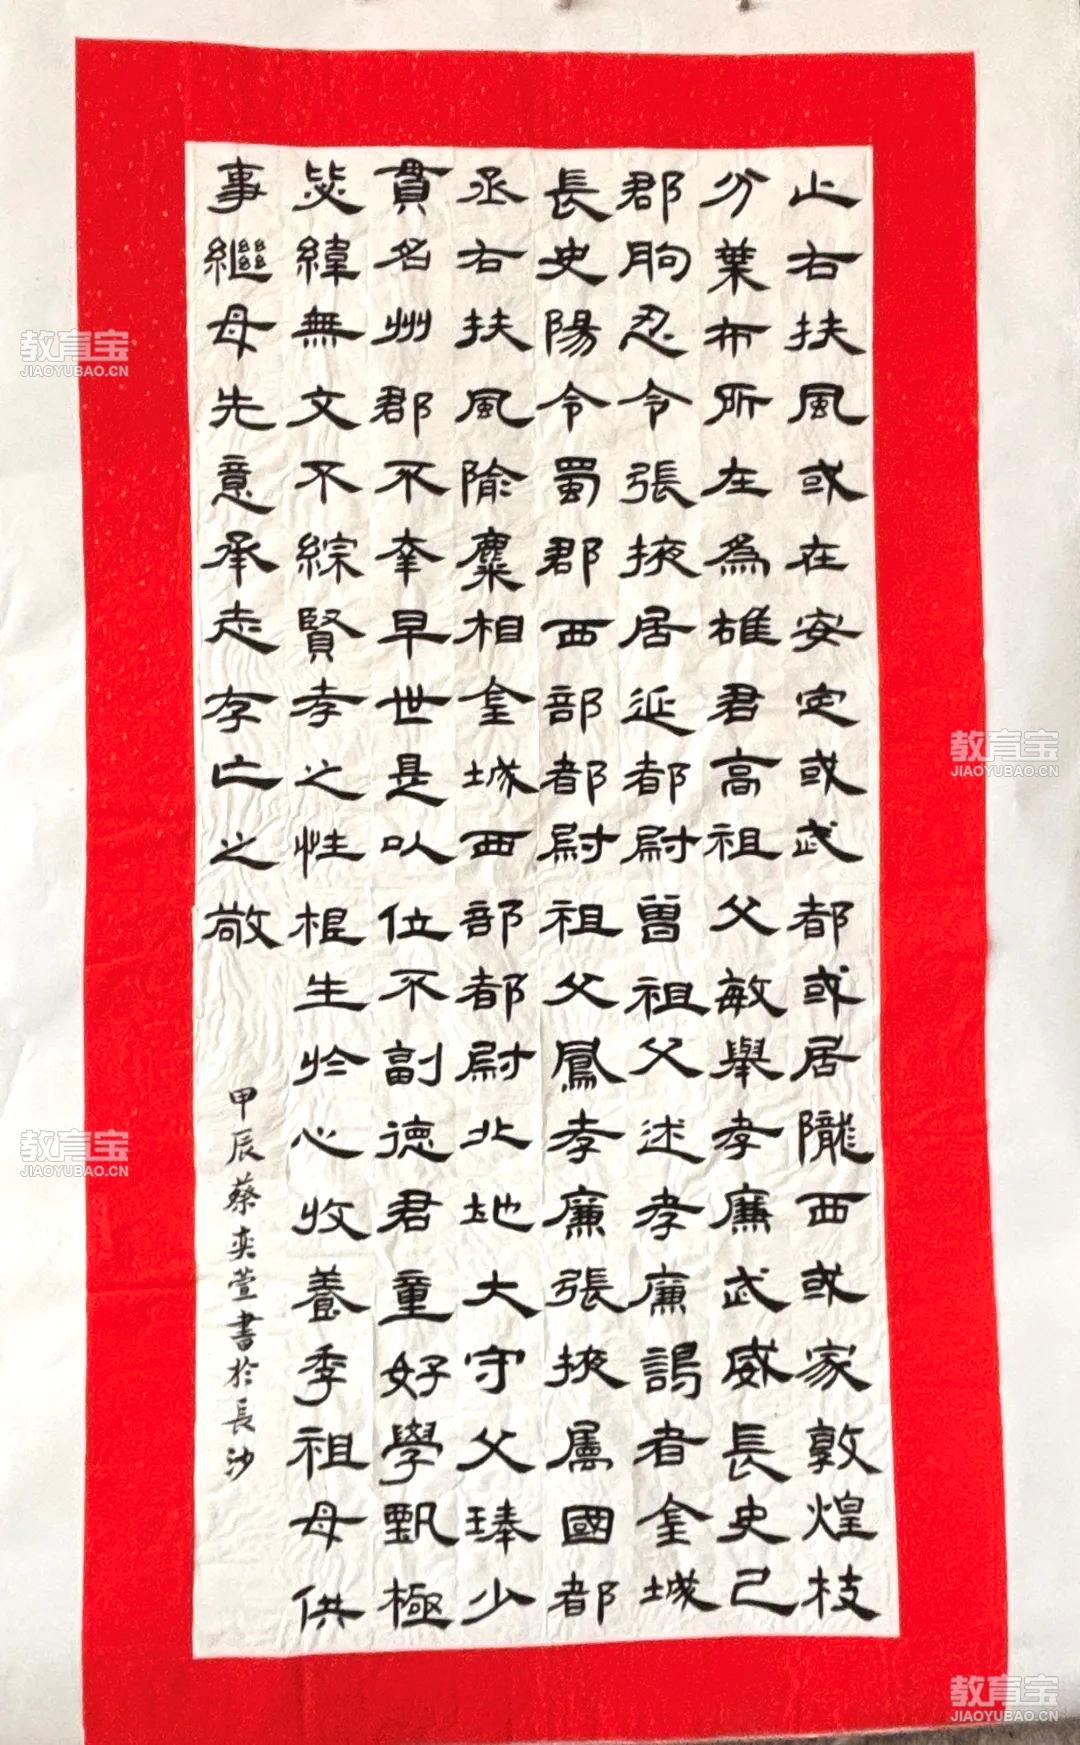 止右扶風或在安定或武都或居隴西或家敦煌枝
分葉布所在為雄君高祖父敏舉孝廉武威長史己
郡朐忍令張掖居延都尉曾祖父述孝廉謁者金城
長史陽令蜀郡西部都尉祖父鳳孝廉張掖屬國都
丞右扶風隃麋相金城西部都尉北地大守父琫少
貫名州郡不幸早世是以位不副德君童好學甄極
毖緯無文不綜賢孝之性根生於心收養季祖母供
事繼母先意承志存亡之敬
甲辰蔡奕萱書於長沙
教育宝
JIAOYUBAO.CN
教育宝
JIAOYUBAO.CN
教育宝
JIAOYUBAO.CN
教育宝
JIAOYUBAO.CN